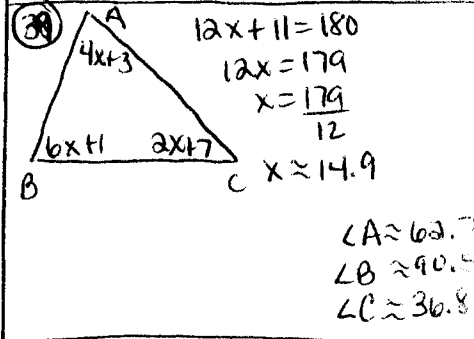 A
4x+3
6x+1
2x+7
B
C
12x+11=180
12x=179
x=179/12
x≈14.9
∠A≈62.
∠B≈90.
∠C≈36.8